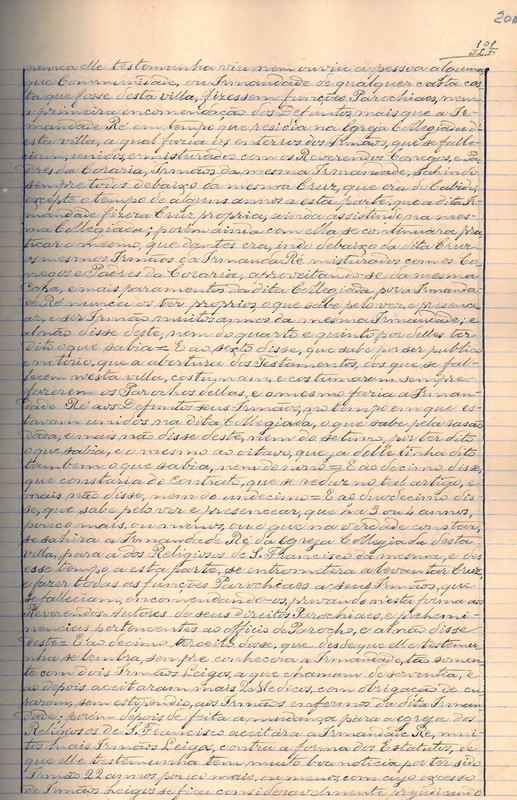 200
101
nunca elle testemunha viu nem ouviu a pessoa alguma
que Communidade, ou Irmandade de qualquer casta cos
ta que fosse desta villa, fizessem funções Parochiaes, nem
a primeira encomendação dos Defuntos, mais que a Ir-
mandade Ré em tempo que residia na Igreja Collegiada d'
esta villa, a qual fazia os enterros dos Irmãos, que se falle-
ciam, unidos, e misturados com os Reverendos Conegos, e Pa-
dres da Coraria, Irmãos da mesma Irmandade, sahindo
sempre todos debaixo da mesma Cruz, que era do Cabido,
excepto o tempo de alguns annos a esta parte, que a dita Ir-
mandade fizera Cruz propria, ainda assistindo na mes-
ma Collegiada; porém ainda com ella se continuara pra
ticar o mesmo, que dantes era, indo debaixo da dita Cruz
os mesmos Irmãos da Irmanda Ré misturados com os Co-
negos e Padres da Coraria, aproveitando-se da mesma
Capa, e mais paramentos da dita Collegiada, por a Irmanda-
de Ré nunca os ter proprios, o que sabe pelo ver, e presence
ar, e ser Irmão muitos annos da mesma Irmandade; e
al não disse deste, nem do quarto e quinto por delles ter
dito o que sabia = E ao sexto disse, que sabe por ser publico
e notorio, que a abertura dos Testamentos, dos que se fal-
lecem n'esta villa, costumam, e costumaram sempre
fazerem os Parochos dellas, e o mesmo fazia a Irman-
dade Ré aos Defuntos seus Irmãos, no tempo em que es-
tavam unidos na dita Collegiada, o que sabe pela rasão
dada, e mais não disse deste, nem do setimo, por ter dito
o que sabia, e o mesmo ao oitavo, que ja delle tinha dito
tambem o que sabia, nem do nono = E ao decimo disse,
que constaria do Contrato, que se reduz no tal artigo, e
mais não disse, nem do undecimo = E ao duodecimo dis-
se, que sabe pelo ver e presencear, que ha 3 ou 4 annos,
pouco mais, ou menos, ou o que na verdade constar,
se sahira a Irmandade Ré da Igreja Collegiada desta
villa, para a dos Religiosos de S. Francisco da mesma, e des
esse tempo a esta parte, se entromettera a levantar Cruz,
e fazer todas as funções Parochiaes a seus Irmãos, que
se falleciam, encomendando-os, privando n'esta forma aos
Reverendos Autores de seus direitos Parochiaes, e prehemi-
nencias pertencentes ao officio de Parocho, e al não disse
deste = E ao decimo terceiro disse, que desde que elle testemu-
nha se lembra, sempre conhecera a Irmandade, tão somen
te com dois Irmãos Leigos, a que chamam de serventia, e
ao depois aceitaram mais 2 Medicos, com obrigação de cu-
rarem, sem estipendio, aos Irmãos enfermos da dita Irman-
dade; porém depois de feita a mudança para a egreja dos
Religiosos de S. Francisco aceitára a Irmandade Ré, mui-
tos mais Irmãos Leigos, contra a forma dos Estatutos, de
que elle testemunha tem muito boa noticia por ter sido
Irmão 22 annos pouco mais, ou menos, com cujo excesso
de Irmãos Leigos se fica consideravelmente prejudicando